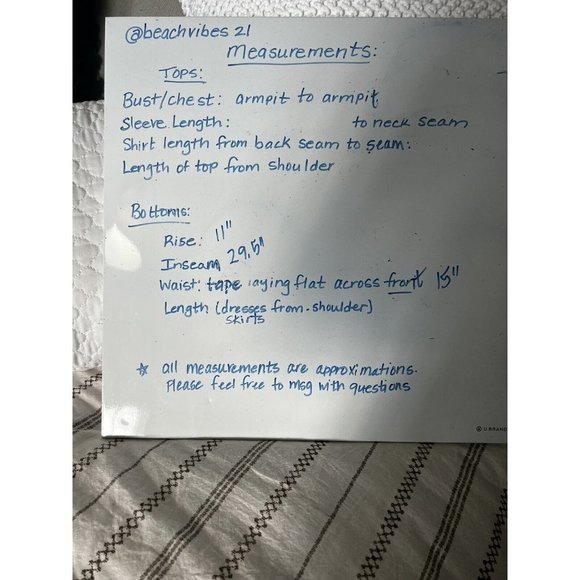 @beachvibes 21
Measurements:
TOPS:
Bust/chest: armpit to armpit
Sleeve Length: to neck seam
Shirt length from back seam to seam:
Length of top from shoulder
Bottoms:
Rise: 11"
Inseam 29.5"
Waist: tape laying flat across front 15"
Length (dresses from shoulder)
skirts
☆ all measurements are approximations.
Please feel free to msg with questions
U BRAND